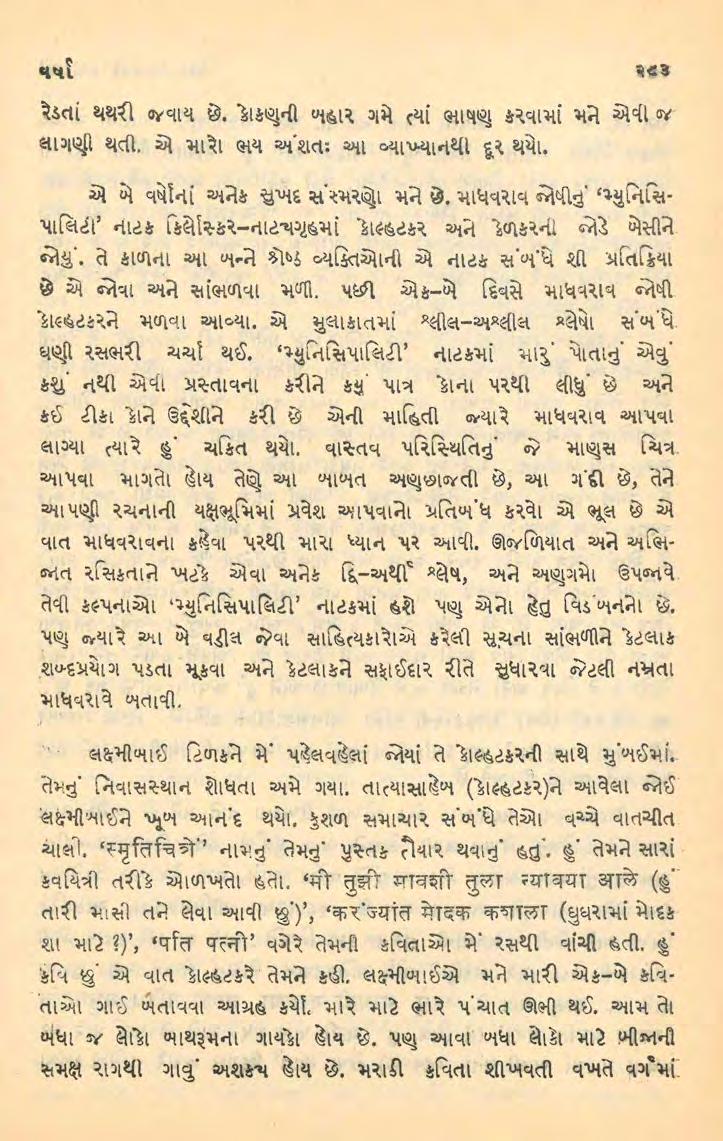 વર્ષા ૨૯૩
રેડતાં થથરી જવાય છે. કોકણની બહાર ગમે ત્યાં ભાષણ કરવામાં મને એવી જ
લાગણી થતી. એ મારો ભય અંશતઃ આ વ્યાખ્યાનથી દૂર થયો.
એ બે વર્ષોનાં અનેક સુખદ સંસ્મરણો મને છે. માધવરાવ જોષીનું ‘મ્યુનિસિ-
પાલિટી’ નાટક કિર્લોસ્કર–નાટ્યગૃહમાં કોલ્હટકર અને કેળકરની જોડે બેસીને
જોયું. તે કાળના આ બન્ને શ્રેષ્ઠ વ્યક્તિઓની એ નાટક સંબંધે શી પ્રતિક્રિયા
છે એ જોવા અને સાંભળવા મળી. પછી એક–બે દિવસે માધવરાવ જોષી
કોલ્હટકરને મળવા આવ્યા. એ મુલાકાતમાં શ્લીલ–અશ્લીલ શ્લેષો સંબંધે
ઘણી રસભરી ચર્ચા થઈ. ‘મ્યુનિસિપાલિટી’ નાટકમાં મારું પોતાનું એવું
કશું નથી એવી પ્રસ્તાવના કરીને કયું પાત્ર કોના પરથી લીધું છે અને
કઈ ટીકા કોને ઉદ્દેશીને કરી છે એની માહિતી જ્યારે માધવરાવ આપવા
લાગ્યા ત્યારે હું ચકિત થયો. વાસ્તવ પરિસ્થિતિનું જે માણસ ચિત્ર
આપવા માગતો હોય તેણે આ બાબત અણછાજતી છે, આ ગંદી છે, તેને
આપણી રચનાની યક્ષભૂમિમાં પ્રવેશ આપવાનો પ્રતિબંધ કરવો એ ભૂલ છે એ
વાત માધવરાવના કહેવા પરથી મારા ધ્યાન પર આવી. ઊજળિયાત અને અભિ-
જાત રસિકતાને ખટકે એવા અનેક દ્વિ-અર્થી શ્લેષ, અને અણગમો ઉપજાવે
તેવી કલ્પનાઓ ‘મ્યુનિસિપાલિટી’ નાટકમાં હશે પણ એનો હેતુ વિડંબનનો છે.
પણ જ્યારે આ બે વડીલ જેવા સાહિત્યકારોએ કરેલી સૂચના સાંભળીને કેટલાક
શબ્દપ્રયોગ પડતા મૂકવા અને કેટલાકને સફાઈદાર રીતે સુધારવા જેટલી નમ્રતા
માધવરાવે બતાવી.
લક્ષ્મીબાઈ ટિળકને મેં પહેલવહેલાં જોયાં તે કોલ્હટકરની સાથે મુંબઈમાં.
તેમનું નિવાસસ્થાન શોધતા અમે ગયા. તાત્યાસાહેબ (કોલ્હટકર)ને આવેલા જોઈ
લક્ષ્મીબાઈને ખૂબ આનંદ થયો. કુશળ સમાચાર સંબંધે તેઓ વચ્ચે વાતચીત
ચાલી. ‘स्मृतिचित्रें’ નામનું તેમનું પુસ્તક તૈયાર થવાનું હતું. હું તેમને સારાં
કવયિત્રી તરીકે ઓળખતો હતો. ‘मी तुझी मावशी तुला न्यावया आले (હું
તારી માસી તને લેવા આવી છું)’, ‘करंज्यांत मोदक कशाला (ઘુઘરામાં મોદક
શા માટે ?)’, ‘पति पत्नी’ વગેરે તેમની કવિતાઓ મેં રસથી વાંચી હતી. હું
કવિ છું એ વાત કોલ્હટકરે તેમને કહી. લક્ષ્મીબાઈએ મને મારી એક–બે કવિ-
તાઓ ગાઈ બતાવવા આગ્રહ કર્યો. મારે માટે ભારે પંચાત ઊભી થઈ. આમ તો
બધા જ લોકો બાથરૂમના ગાયકો હોય છે. પણ આવા બધા લોકો માટે બીજાની
સમક્ષ રાગથી ગાવું અશક્ય હોય છે. મરાઠી કવિતા શીખવતી વખતે વર્ગમાં